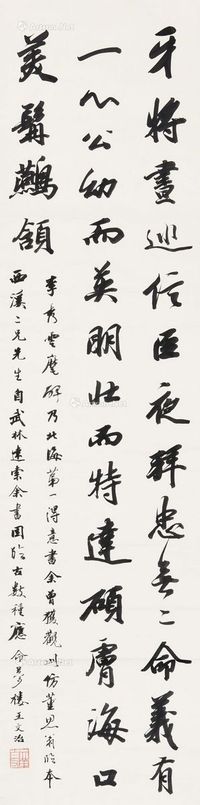 牙將晝巡信臣夜拜忠無二命義有
一心公幼而英明壯而特達碩膚海口
美髯鷰頷
李秀雲麾碑乃北海第一得意書余曾獲觀此仿董思翁臨本
西溪二兄先生自武林遠索余書因臨古數種應命夢樓王文治